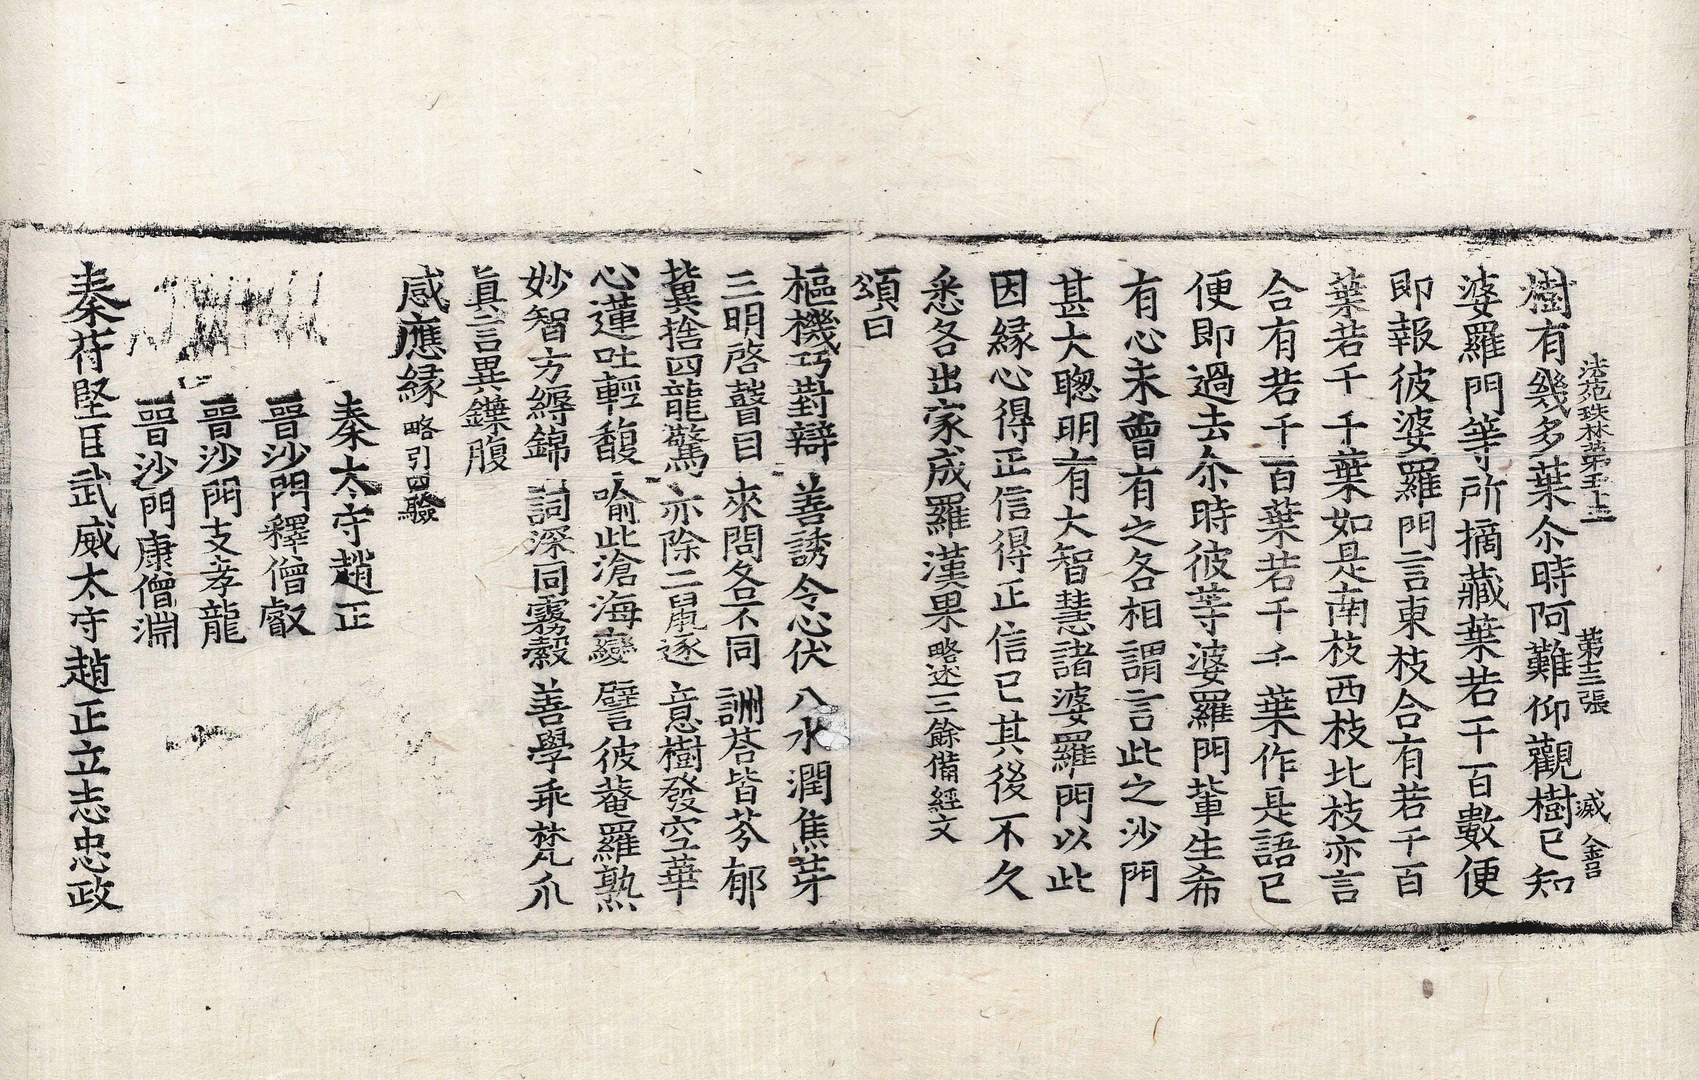 法苑珠林第五十三　第十三張　滅　合
樹有幾多葉尒時阿難仰觀樹已知
婆羅門等所摘藏葉若干百數便
即報彼婆羅門言東枝合有若干百
葉若干千葉如是南枝西枝北枝亦言
合有若干百葉若干千葉作是語已
便即過去尒時彼等婆羅門輩生希
有心未曾有之各相謂言此之沙門
甚大聰明有大智慧諸婆羅門以此
因縁心得正信得正信已其後不久
悉各出家成羅漢果略述一三餘備經文
頌曰
樞機巧對辯　善誘令心伏　八水潤焦芽
三明啓瞽目　來問各不同　詶荅皆芬郁
冀捨四龍驚　亦除二鼠逐　意樹發空華
心蓮吐輕馥　喻此滄海變　譬彼菴羅熟
妙智方縟錦　詞深同霧縠　善學乖梵爪
眞言異鍱腹
感應縁略引四驗
秦太守趙正
晉沙門釋僧叡
晉沙門支孝龍
晉沙門康僧淵
秦苻堅臣武威太守趙正立志忠政